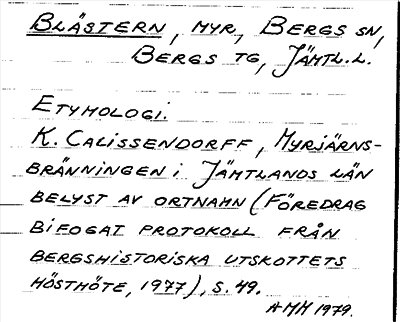 BLÄSTERN, MYR, BERGS SN,
BERGS TG, JÄMTL.L.
ETYMOLOGI.
K. CALISSENDORFF, MYRJÄRNS-
BRÄNNINGEN I JÄMTLANDS LÄN
BELYST AV ORTNAMN (FÖREDRAG
BIFOGAT PROTOKOLL FRÅN
BERGSHISTORISKA UTSKOTTETS
HÖSTMÖTE, 1977), S. 49.
AMM 1979.